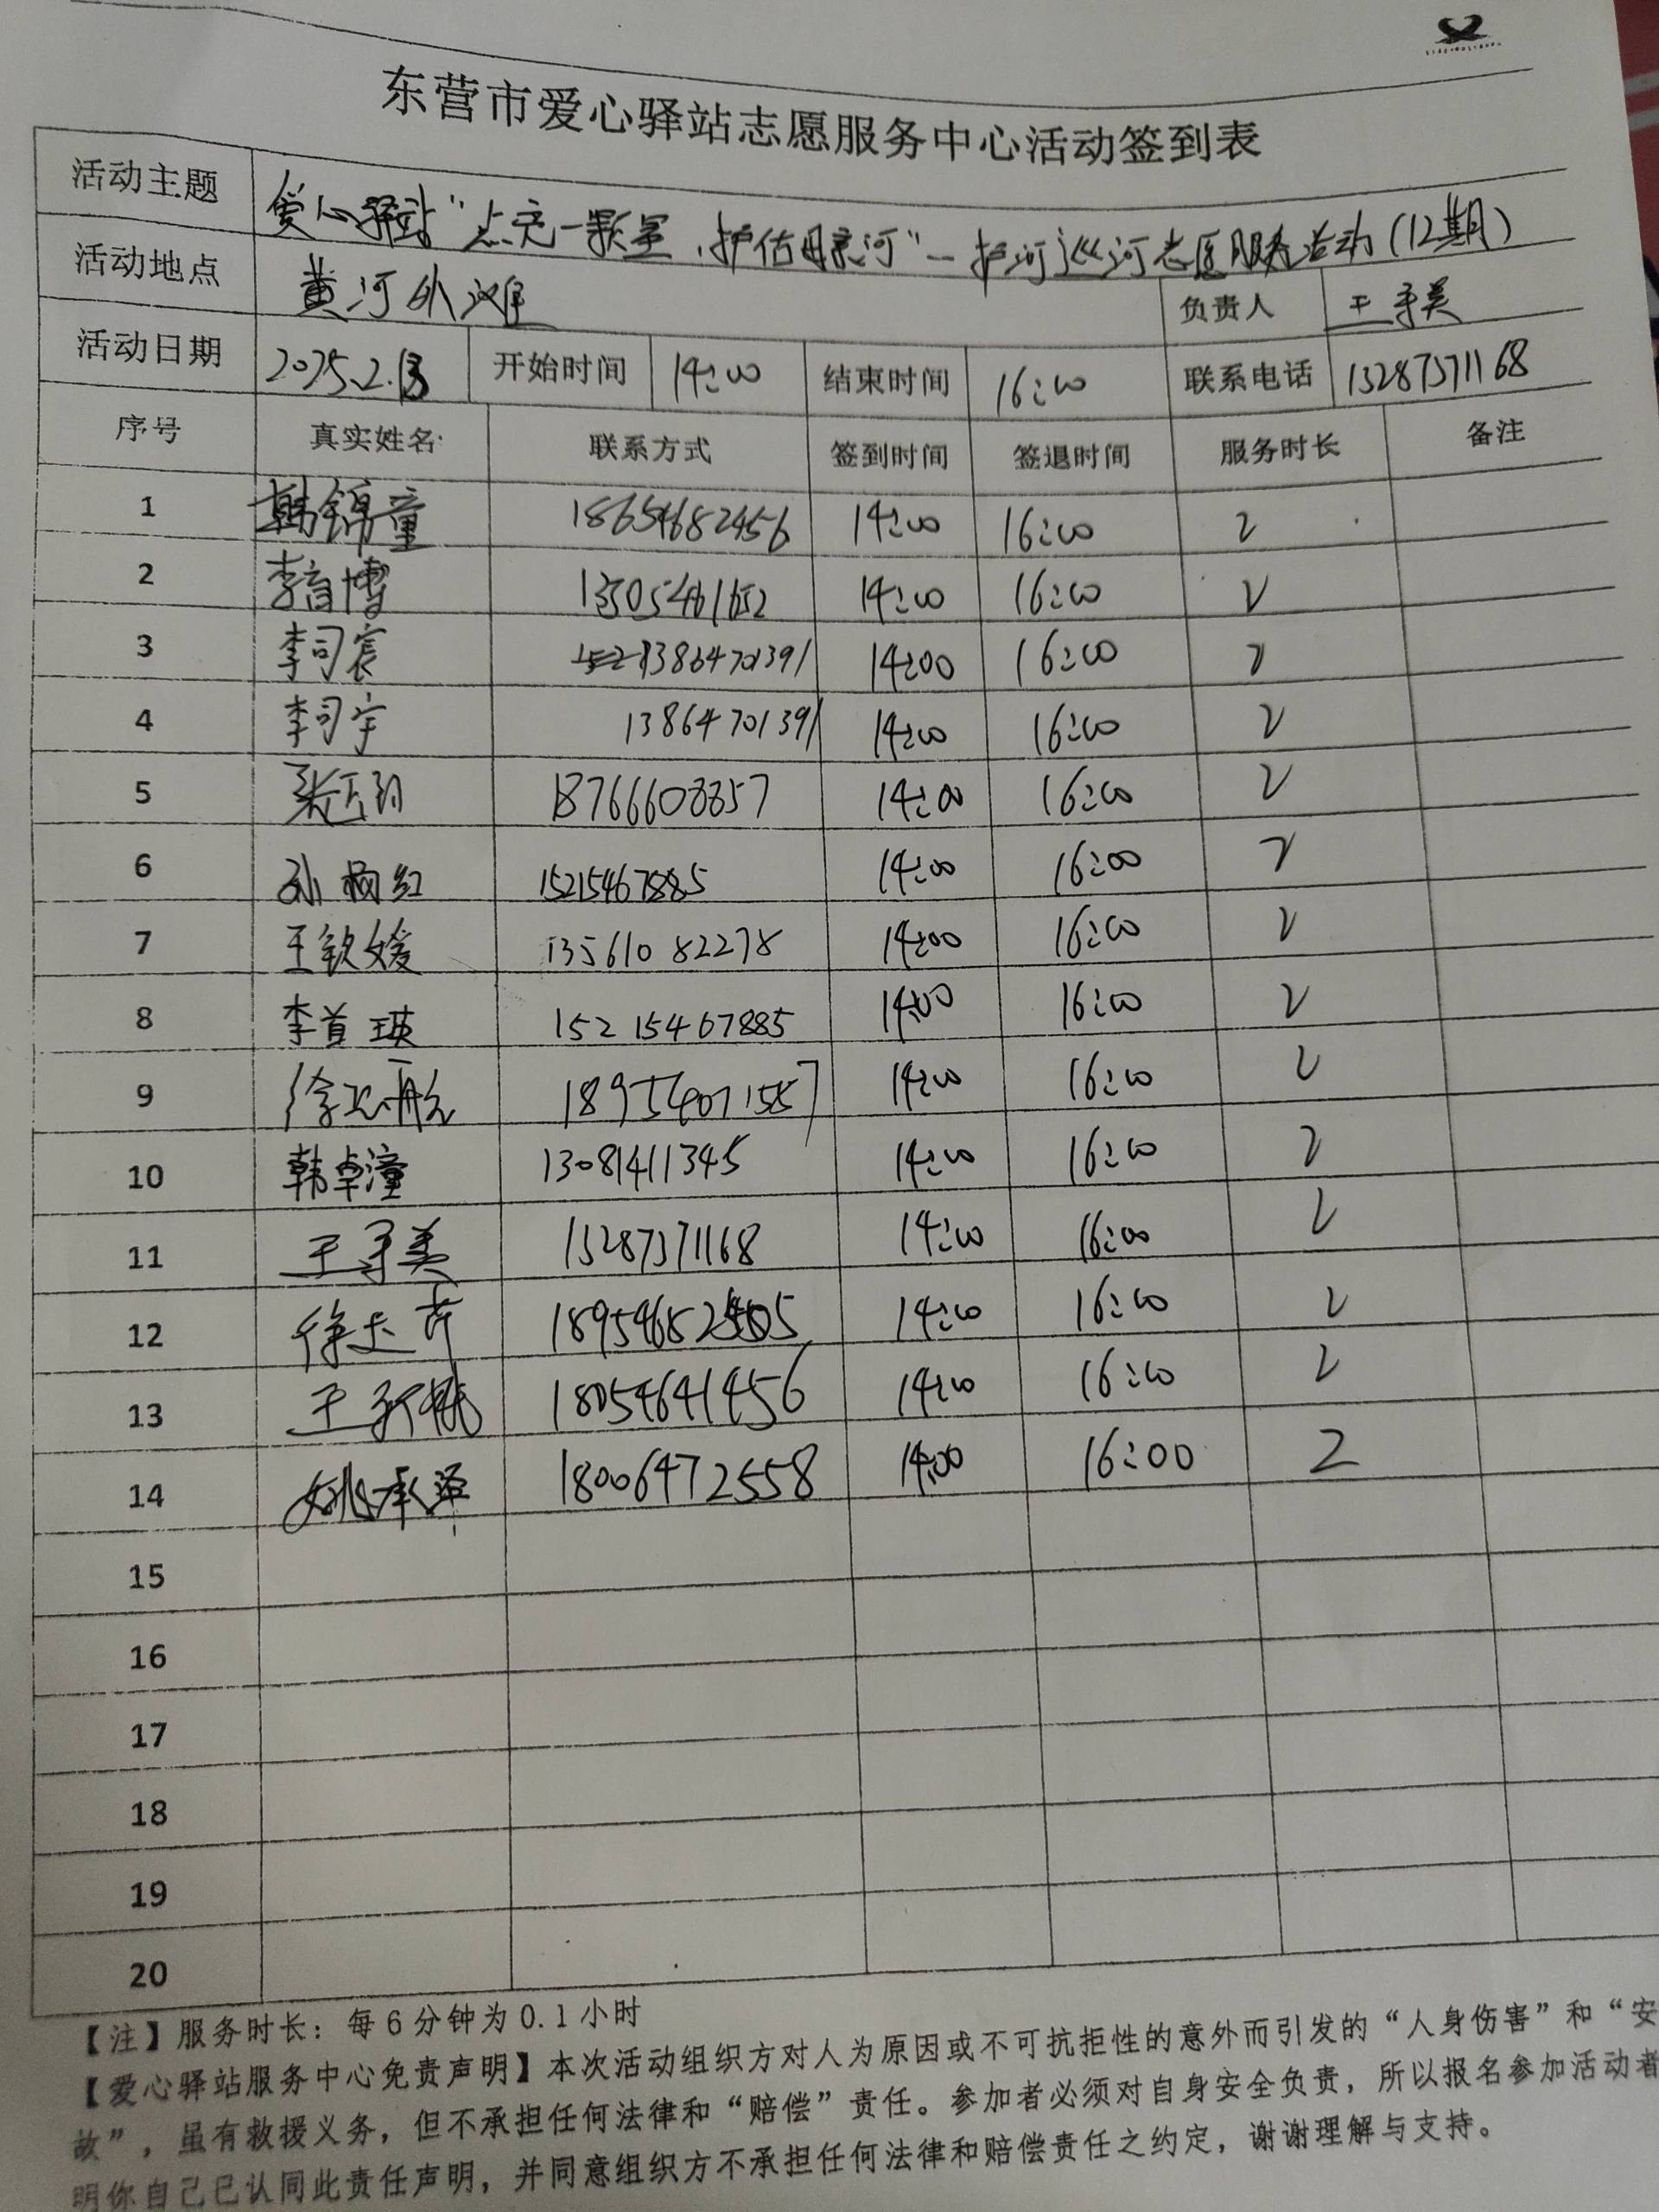 东营市爱心驿站志愿服务中心活动签到表
活动主题 爱心驿站“点亮一颗星，护佑母亲河”—护河巡河志愿服务活动(12期)
活动地点 黄河外滩 负责人 王寻美
活动日期 2025.2.13 开始时间 14:00 结束时间 16:00 联系电话 15287371168
序号 真实姓名 联系方式 签到时间 签退时间 服务时长 备注
1 韩锦童 18654682456 14:00 16:00 2
2 李育博 14:00 16:00 2
3 李司宸 13864701391 14:00 16:00 2
4 李司宇 13864701391 14:00 16:00 2
5 18766608357 14:00 16:00 2
6 孙树红 15215467885 14:00 16:00 2
7 王钦媛 13561082278 14:00 16:00 2
8 李首瑛 15215467885 14:00 16:00 2
9 14:00 16:00 2
10 韩卓潼 13081411345 14:00 16:00 2
11 王寻美 15287371168 14:00 16:00 2
12 14:00 16:00 2
13 18054641456 14:00 16:00 2
14 姚承泽 18006472558 14:00 16:00 2
15
16
17
18
19
20
【注】服务时长：每6分钟为0.1小时
【爱心驿站服务中心免责声明】本次活动组织方对人为原因或不可抗拒性的意外而引发的“人身伤害”和“安
故”，虽有救援义务，但不承担任何法律和“赔偿”责任。参加者必须对自身安全负责，所以报名参加活动者
明你自己已认同此责任声明，并同意组织方不承担任何法律和赔偿责任之约定，谢谢理解与支持。